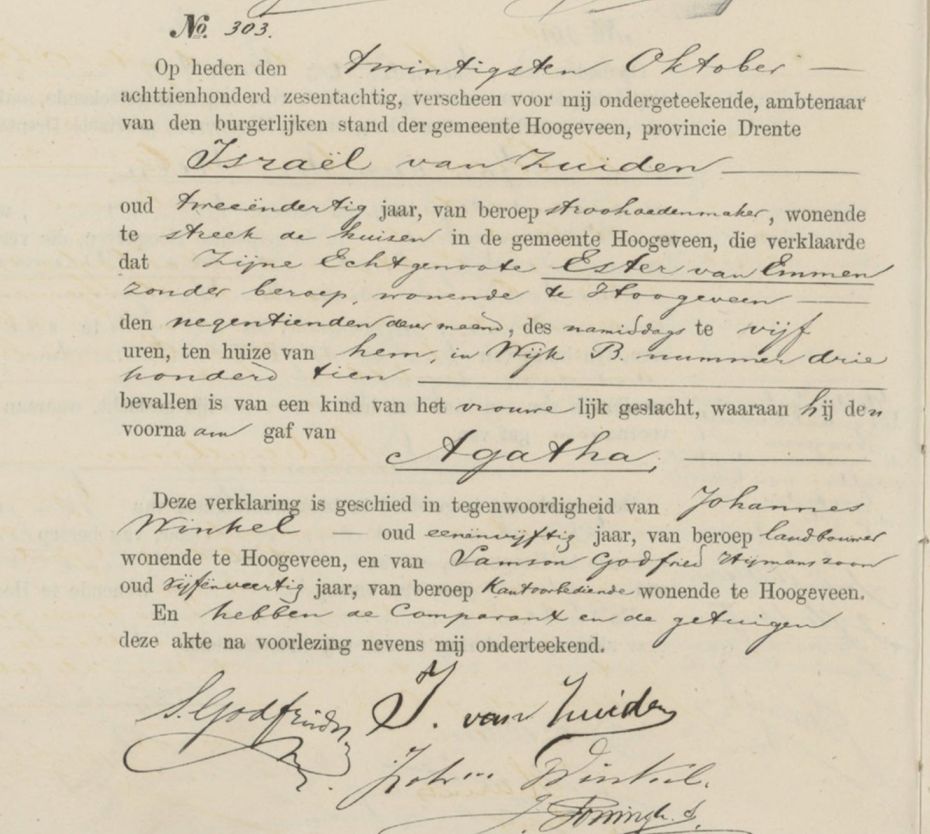 No. 303.
Op heden den twintigsten Oktober —
achttienhonderd zesentachtig, verscheen voor mij ondergeteekende, ambtenaar
van den burgerlijken stand der gemeente Hoogeveen, provincie Drente
Israël van Zuiden
oud tweeëndertig jaar, van beroep stroohoedenmaker, wonende
te streek de huizen in de gemeente Hoogeveen, die verklaarde
dat Zijne Echtgenoote Ester van Emmen
zonder beroep, wonende te Hoogeveen —
den negentienden dezer maand, des namiddags te vijf
uren, ten huize van hem, in Wijk B. nummer drie
honderd tien
bevallen is van een kind van het vrouwelijk geslacht, waaraan hij den
voornaam gaf van
Agatha,
Deze verklaring is geschied in tegenwoordigheid van Johannes
Winkel — oud eenenvijftig jaar, van beroep landbouwer
wonende te Hoogeveen, en van Samson Godfried Hijmanszoon
oud vijfenveertig jaar, van beroep Kantoorbediende wonende te Hoogeveen.
En hebben de Comparant en de getuigen
deze akte na voorlezing nevens mij onderteekend.
S. Godfried J. van Zuiden
Winkel.